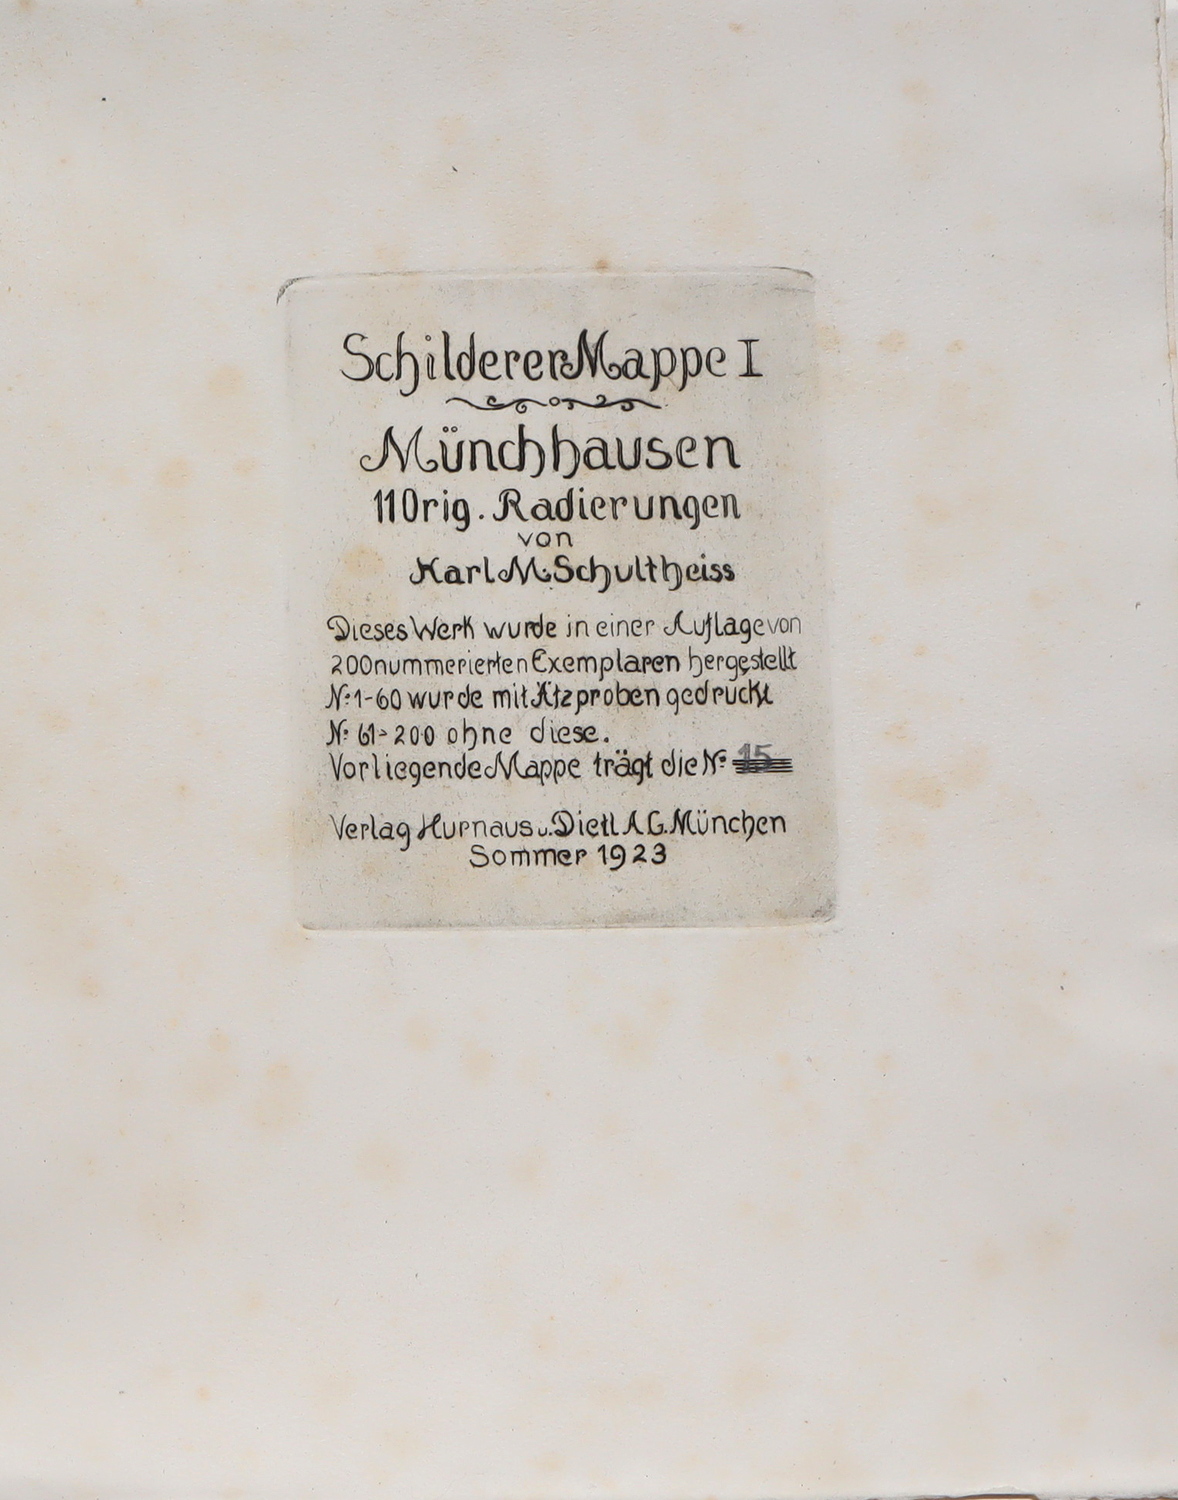 Schilderer Mappe I
Münchhausen
11 Orig. Radierungen
von
Karl M. Schultheiss
Dieses Werk wurde in einer Auflage von
200 nummerierten Exemplaren hergestellt
Nº 1-60 wurde mit Ätzproben gedruckt
Nº 61-200 ohne diese.
Vorliegende Mappe trägt die Nº 15
Verlag Hurnaus u. Dietl A G. München
Sommer 1923